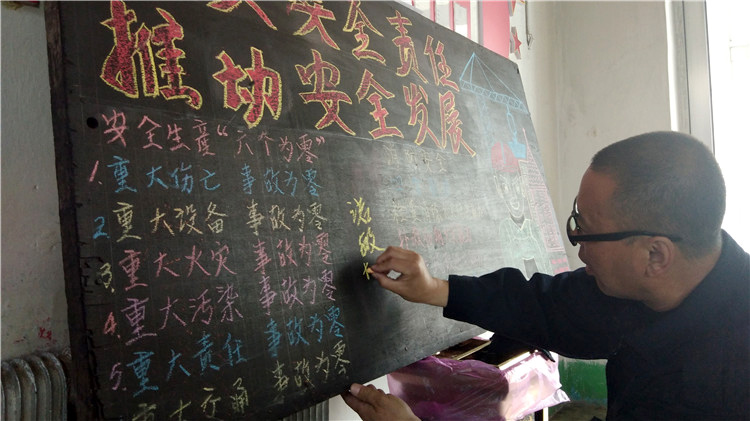 安全责任
推动安全发展
安全生産“六个为零”
1. 重大伤亡 事故为零
2. 重大设备 事故为零
3. 重大火灾 事故为零
4. 重大污染 事故为零
5. 重大责任 事故为零
重大交通 事故为零